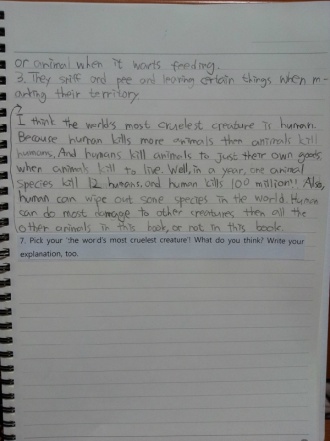 or animal when it wants feeding.
3. They sniff and pee and leaving certain things when m-
arking their territory.
7.
I think the world's most cruelest creature is human.
Because human kills more animals then animals kill
humans. And humans kill animals to just their own goods,
when animals kill to live. Well, in a year, one animal
species kill 12 humans, and human kills 100 million!! Also,
human can wipe out some species in the world. Human
can do most damage to other creatures then all the
other animals in this book, or not in this book.
7. Pick your 'the word's most cruelest creature'! What do you think? Write your
explanation, too.